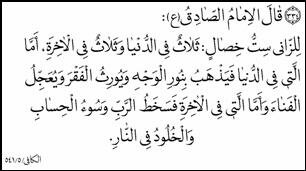 ﴿٣٣٦﴾ قَالَ الْاِمَامُ الصَّادِقُ(ع):
لِلزّانى سِتُّ خِصالٍ: ثَلاثٌ فِى الدُّنْيا وَثَلاثٌ فِى الْاخِرَةِ. اَمَّا
الَّتى فِى الدُّنْيا فَيَذْهَبُ بِنُورِ الْوَجْهِ وَيُورِثُ الْفَقْرَ وَيُعَجِّلُ
الْفَناءَ وَاَمَّا الَّتى فِى الْاخِرَةِ فَسَخَطُ الرَّبِّ وَسُوءُ الْحِسابِ
وَالْخُلُودُ فِى النّارِ.
الكافى/٥/٥٤١